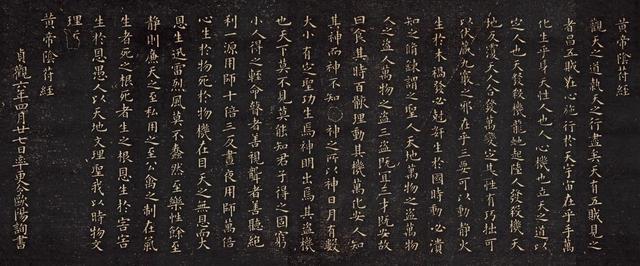 黄帝陰符經
觀天之道執天之行盡矣天有五賊見之
者昌五賊在心施行於天宇宙在乎手萬
化生乎身天性人也人心機也立天之道以
定人也天發殺機龍蛇起陸人發殺機天
地反覆天人合發萬變定基性有巧拙可
以伏藏九竅之邪在乎三要可以動静火
生於木禍發必尅姧生於國時動必潰
知之脩鍊謂之聖人天地萬物之盗萬物
人之盗人萬物之盗三盗既宜三才既安故
曰食其時百骸理動其機萬化安人知
其神而神不知神之所以神日月有數
大小有定聖功生焉神明出焉其盗機
也天下莫不見莫能知君子得之固窮
小人得之輕命瞽者善視聾者善聽絶
利一源用師十倍三反晝夜用師萬倍
心生於物死於物機在目天之無恩而大
恩生迅雷烈風莫不蠢然至樂性餘至
静則廉天之至私用之至公禽之制在氣
生者死之根死者生之根恩生於害害
生於恩愚人以天地文理聖我以時物文
理
黄帝陰符經
貞觀六年四月廿七日率更令歐陽詢書